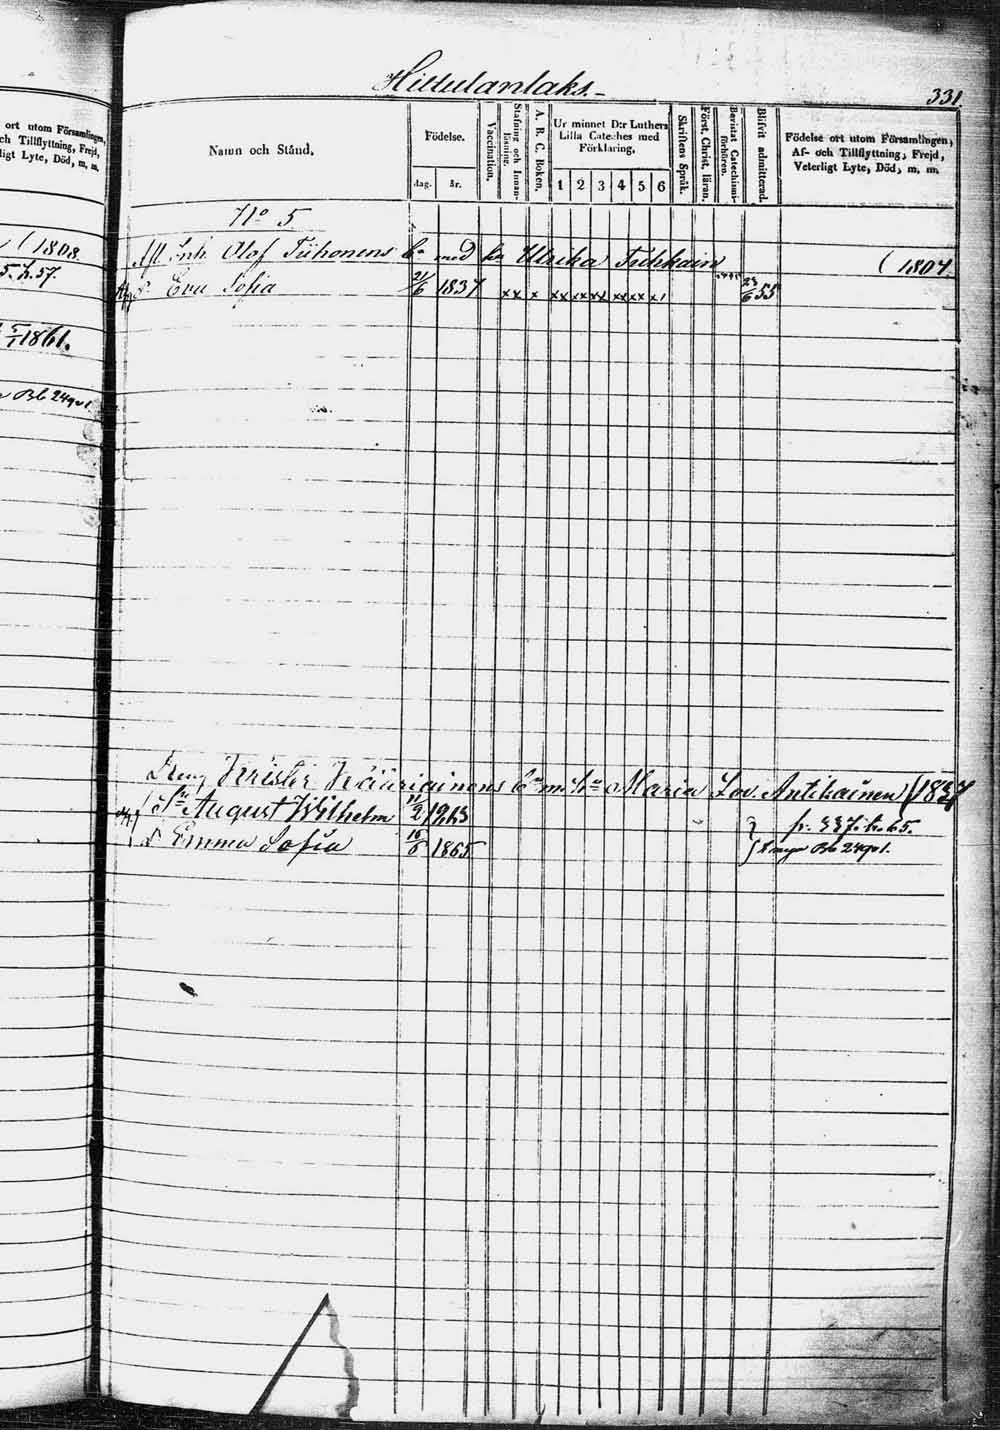 ort utom Församlingen,
ch Tillflyttning, Frejd,
ligt Lyte, Död, m. m.
( 1808.
5. k. 57.
5/1 1861.
Bb 2491
Hittulanlaks.
331
Namn och Stånd.
Födelse.
dag.
år.
Vaccination.
Stafning och Innanläsning.
A. B. C. Boken.
Ur minnet D:r Luthers
Lilla Cateches med
Förklaring,
1 2 3 4 5 6
Skriftens Språk.
Först. Christ. läran.
Bevistat Catechismiförhören.
Blifvit admitterad.
Födelse ort utom Församlingen,
Af- och Tillflyttning, Frejd,
Veterligt Lyte, Död, m. m.
No 5
Olof Tiihonens med Ulrika ( 1807
Eva Sofia 21/6 1837 xx x xx xx xx xx xx x 23/6 55
Dreng Krister Maria Lov. Antikainen (1837
August Wilhelm 11/2 1863 fr. 337. k. 65.
Emma Sofia 16/6 1865 Bb 2491.